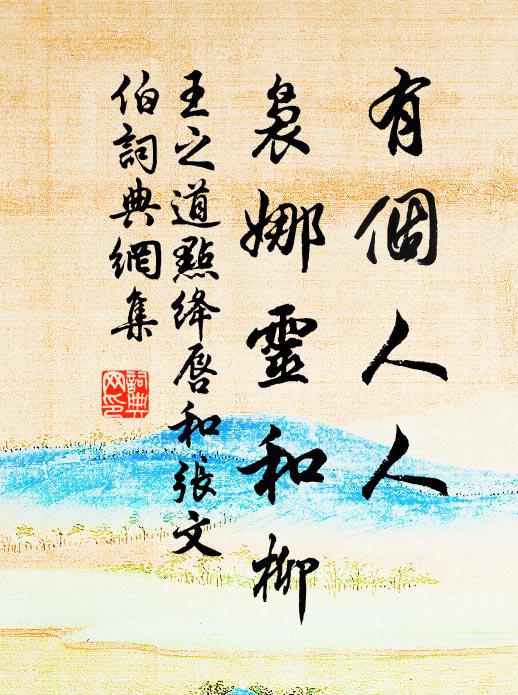 有個人人
裊娜靈和柳
王之道點絳唇和張文
伯詞典網集
詞典
网印